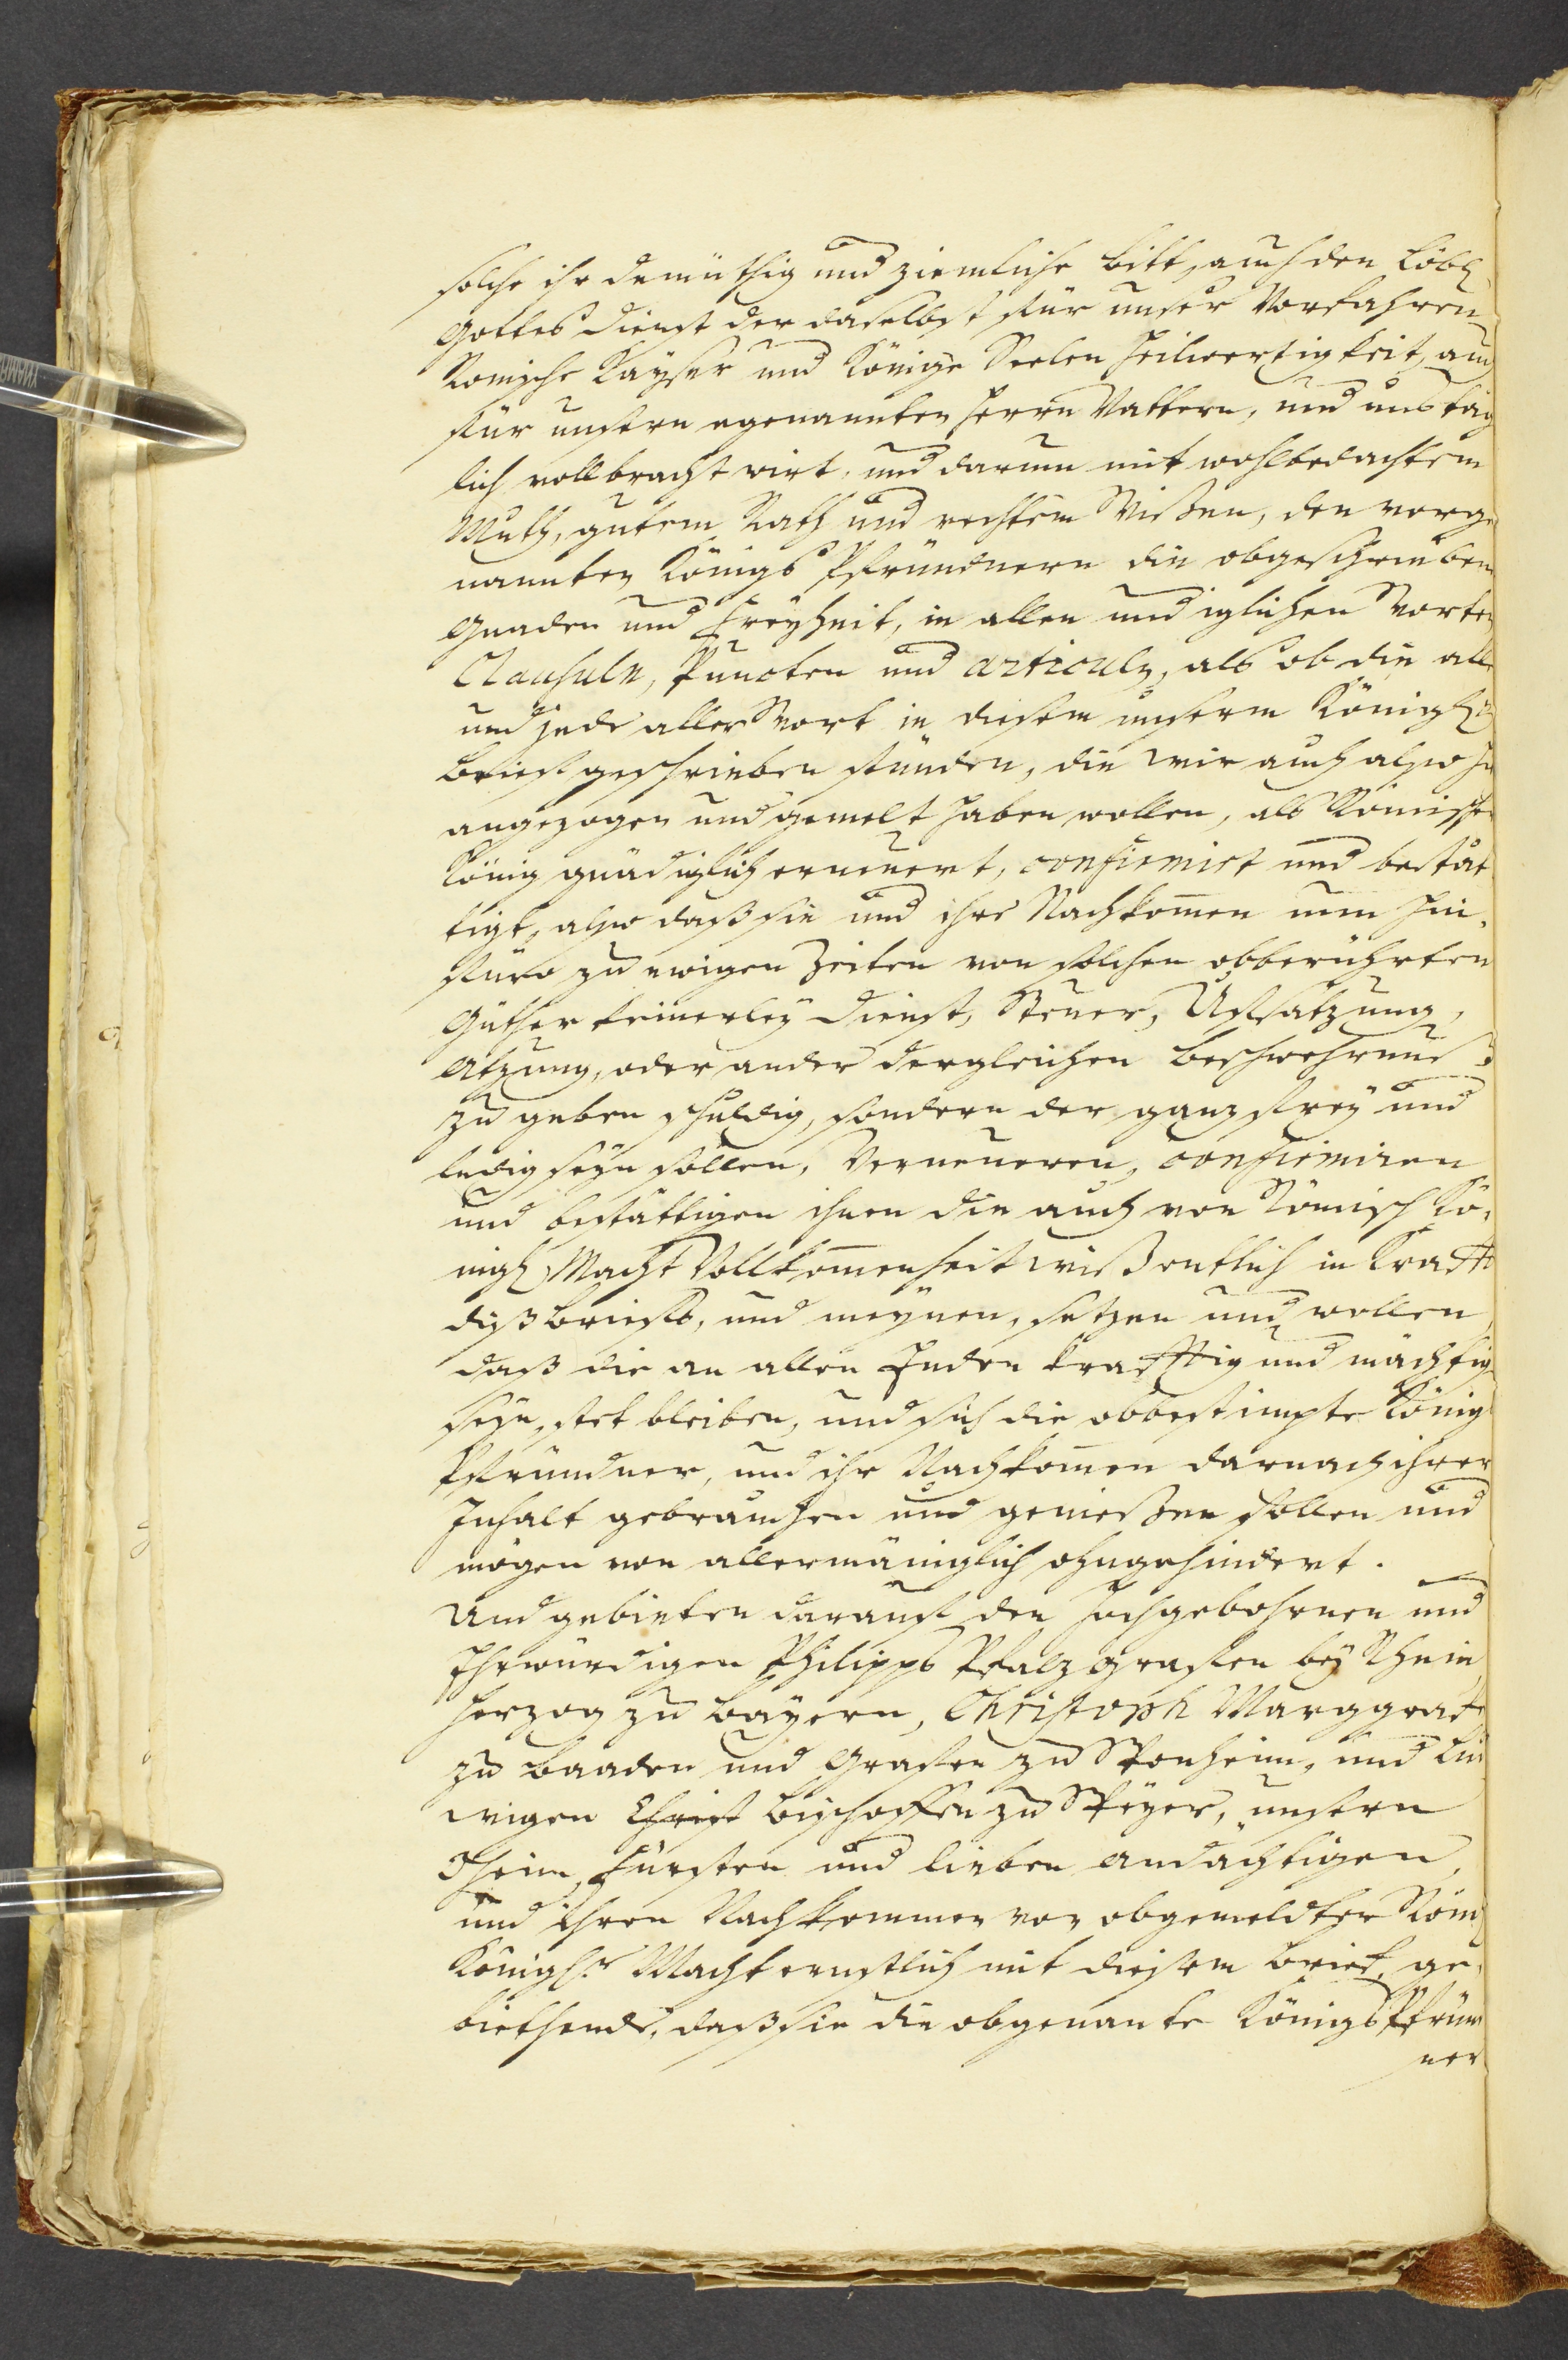 solche ihr demüthig und ziemliche bitt, auch den Löbl.
Gottes dienst der daselbst für unser Vorfahren
Romische Kayser und Könige Seelen heilwertigkeit, auch
für unsern egenannten herrn Vattern, und uns täg
lich vollbracht wirt, und darum mit wohlbedachtem
Muth, gutem Rath und rechtem Wißen, den vorge
nannten Königs Pfründnern die obgeschrieben
Gnaden und Freyheit, in allen und iglichen Worten
Clausuln, Puncten und Articuln, als ob die alle
und jede aller Wort in diesem unserm Königl.n
brieff geschrieben stünden, die wir auch also hie
angezogen und gemelt haben wollen, als Römischer
König gnädiglich erneuert, confirmirt und bestät
tigt, also daß sie und ihre Nachkomen nun hin-
füro zu ewigen Zeiten von solchen obberührten
Güther keinerley dienst, Steuer, Uffsatzung,
Atzung, oder ander dergleichen beschwehrnuß
zu geben schuldig, sondern der ganz frey und
ledig seyn sollen, Verneueren, confirmiren
und bestättigen ihnen die auch von Römisch Kö-
nigl. Macht Vollkomenheit wißentlich in Krafft
diß brieffs, und meynen, setzen und wollen
daß die an allen Enden krafftig und mächtig
seyn, stet bleiben, und sich die obbestimpte König
Pfründner, und ihr Nachkomen darnach ihrer
Inhalt gebrauchen und genießen sollen und
mögen von allermäniglich ohngehindert.
Und gebieten darauff den hochgebohrnen und
Ehrwürdigen Philipps Pfalz Graffen bey Rhein
Herzog zu bayern, Christoph Marggraff
zu baaden und Graffen zu Sponheim, und Lud
wigen Christ bischoffen zu Speyer, unsern
Oheim, Fürsten und lieben andächtigen,
und ihren Nachkommen von obgemeldter Röm.
Königl.r Macht ernstlich mit diesem brief, ge-
biethende, daß sie die obgenante Königs Pfründ
ner